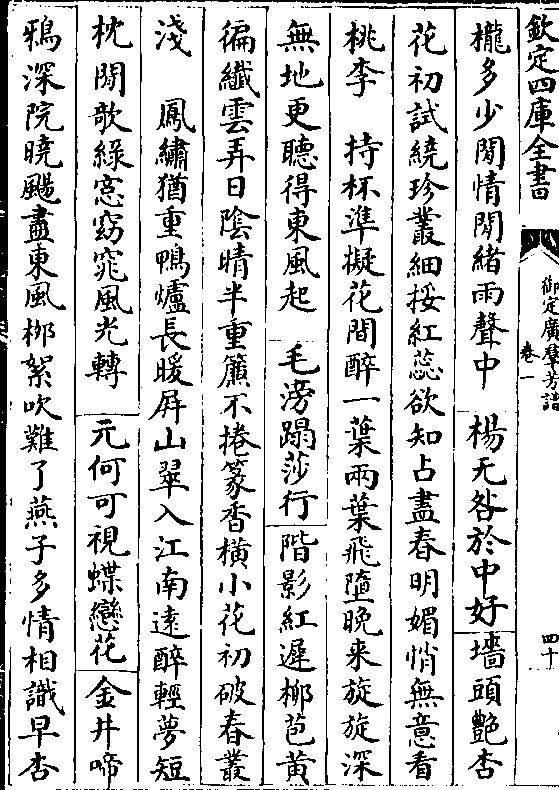 欽定四庫全書
御定廣羣芳譜
卷一
四十
櫳多少閒情閒緒雨聲中　楊无咎於中好　墻頭艷杏
花初試繞珍叢細挼紅蕊欲知占盡春明媚悄無意看
桃李　持杯準擬花間醉一葉兩葉飛墮晚来旋旋深
無地更聽得東風起　毛滂蹋莎行　階影紅遲柳苞黄
徧纖雲弄日陰晴半重簾不捲篆香橫小花初破春叢
淺　鳳繡猶重鴨爐長暖屏山翠入江南遠醉輕夢短
枕閒欹綠窻窈窕風光轉　元何可視蝶戀花　金井啼
鴉深院曉颺盡東風柳絮吹難了燕子多情相識早杏